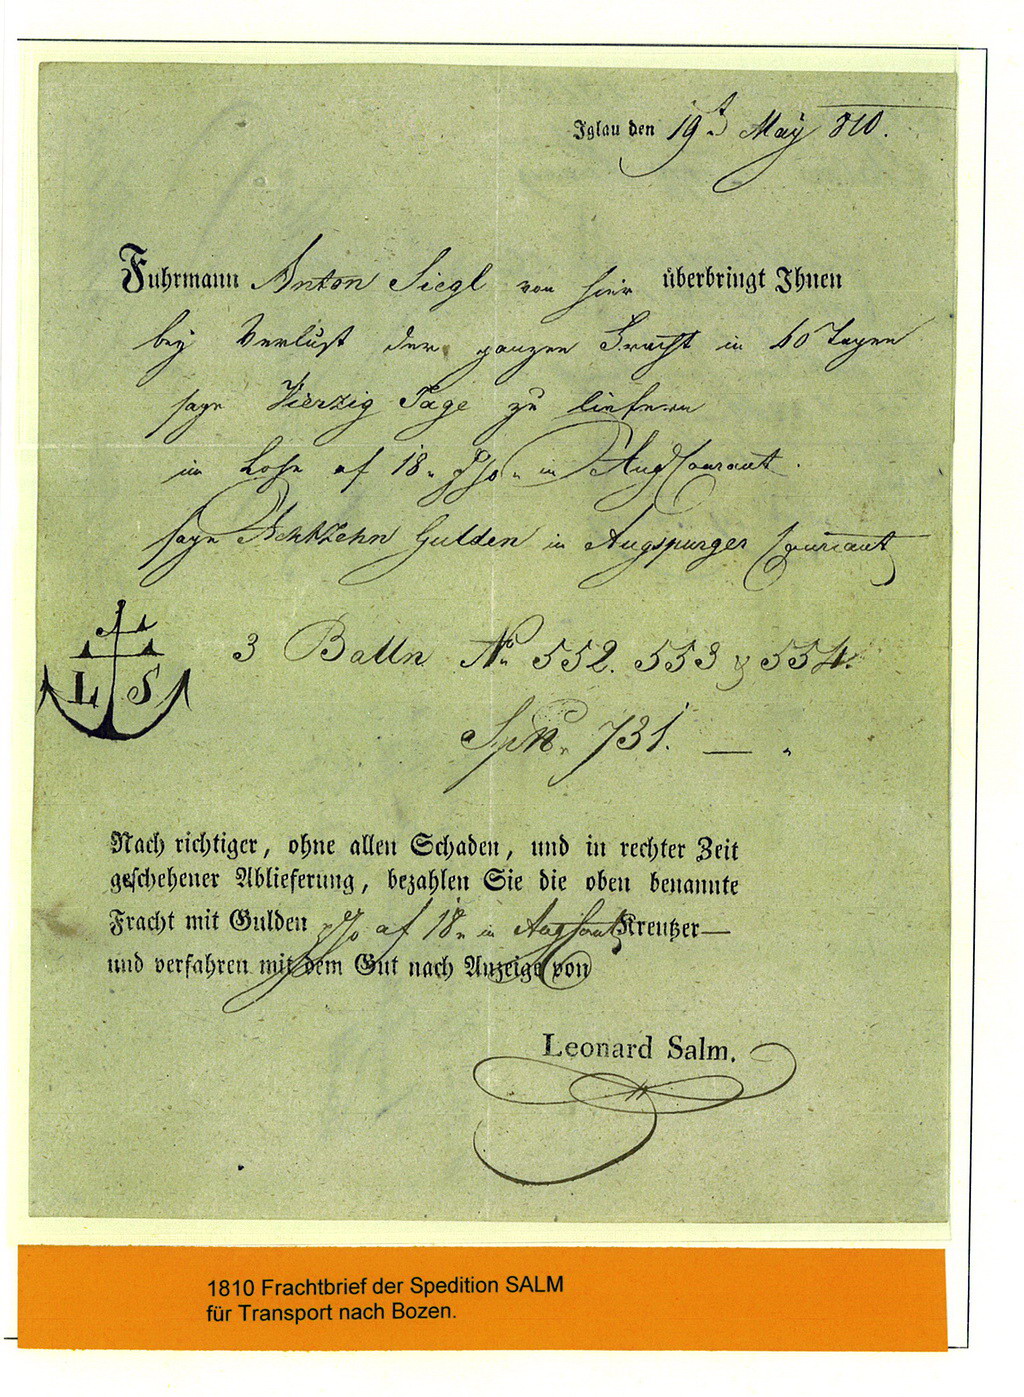 Iglau den 19t May 810.
Fuhrmann Anton Siegl von hier überbringt Ihnen
bey Verlust der ganzen Fracht in 40 Tagen
sage Vierzig Tage zu liefern
in Lohn af 18 in Augs Courant.
sage Achtzehn Gulden in Augspurger Courant
3 Balln No 552. 553 & 554.
L S
Spn. 731. —
Nach richtiger, ohne allen Schaden, und in rechter Zeit
geschehener Ablieferung, bezahlen Sie die oben benannte
Fracht mit Gulden af 18 in Kreutzer—
und verfahren mit dem Gut nach Anzeige von
Leonard Salm.
1810 Frachtbrief der Spedition SALM
für Transport nach Bozen.